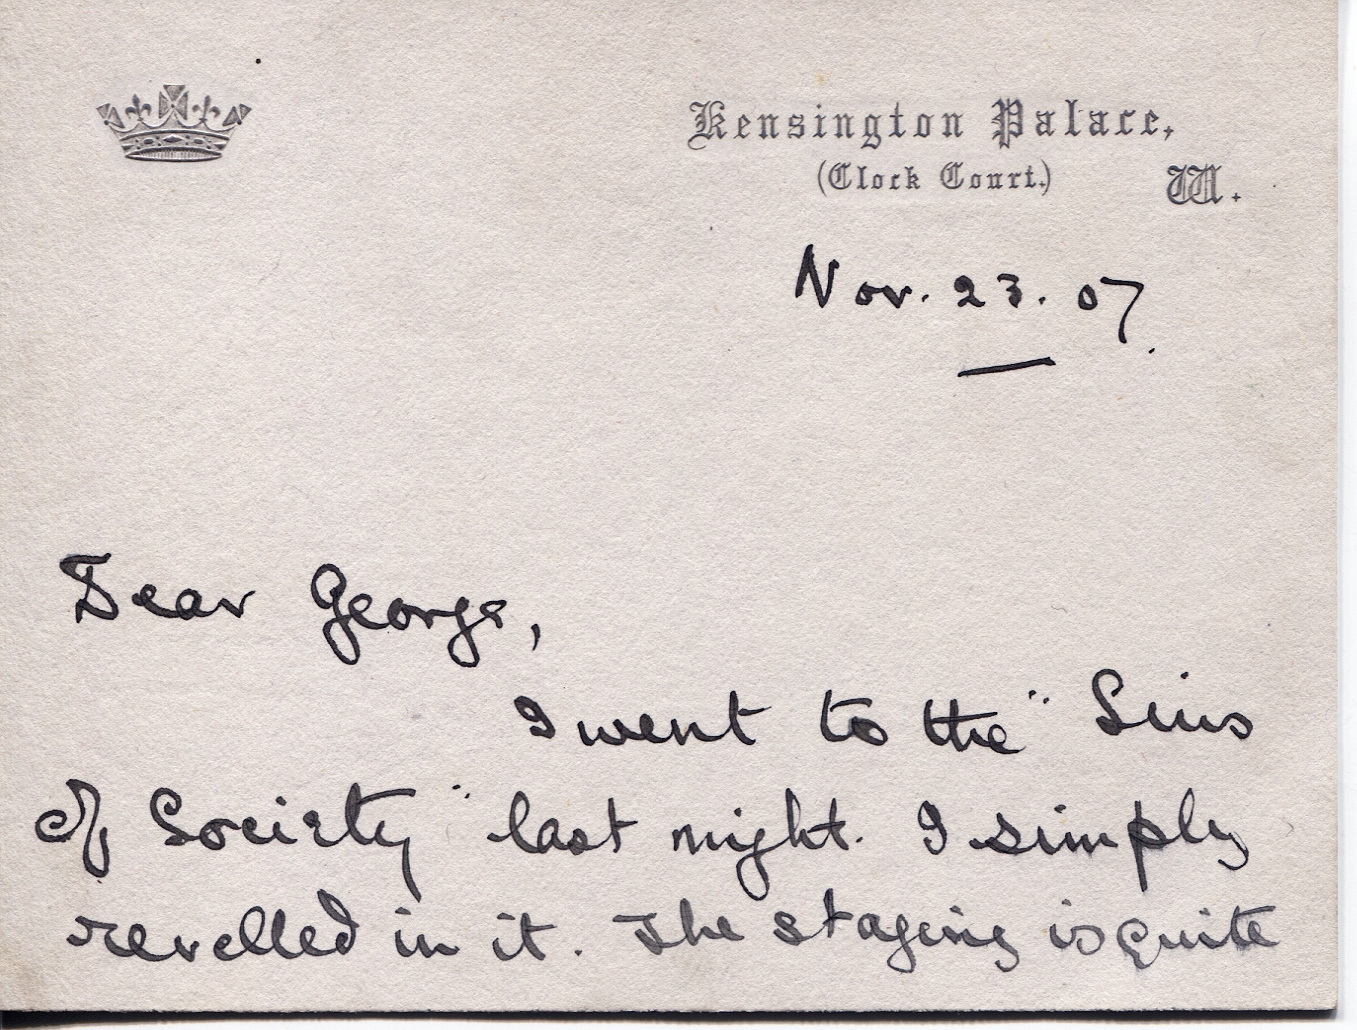 Kensington Palace,
(Clock Court.) W.
Nov. 23. 07.
Dear George,
I went to the "Sins
of Society" last night. I simply
revelled in it. The staging is quite